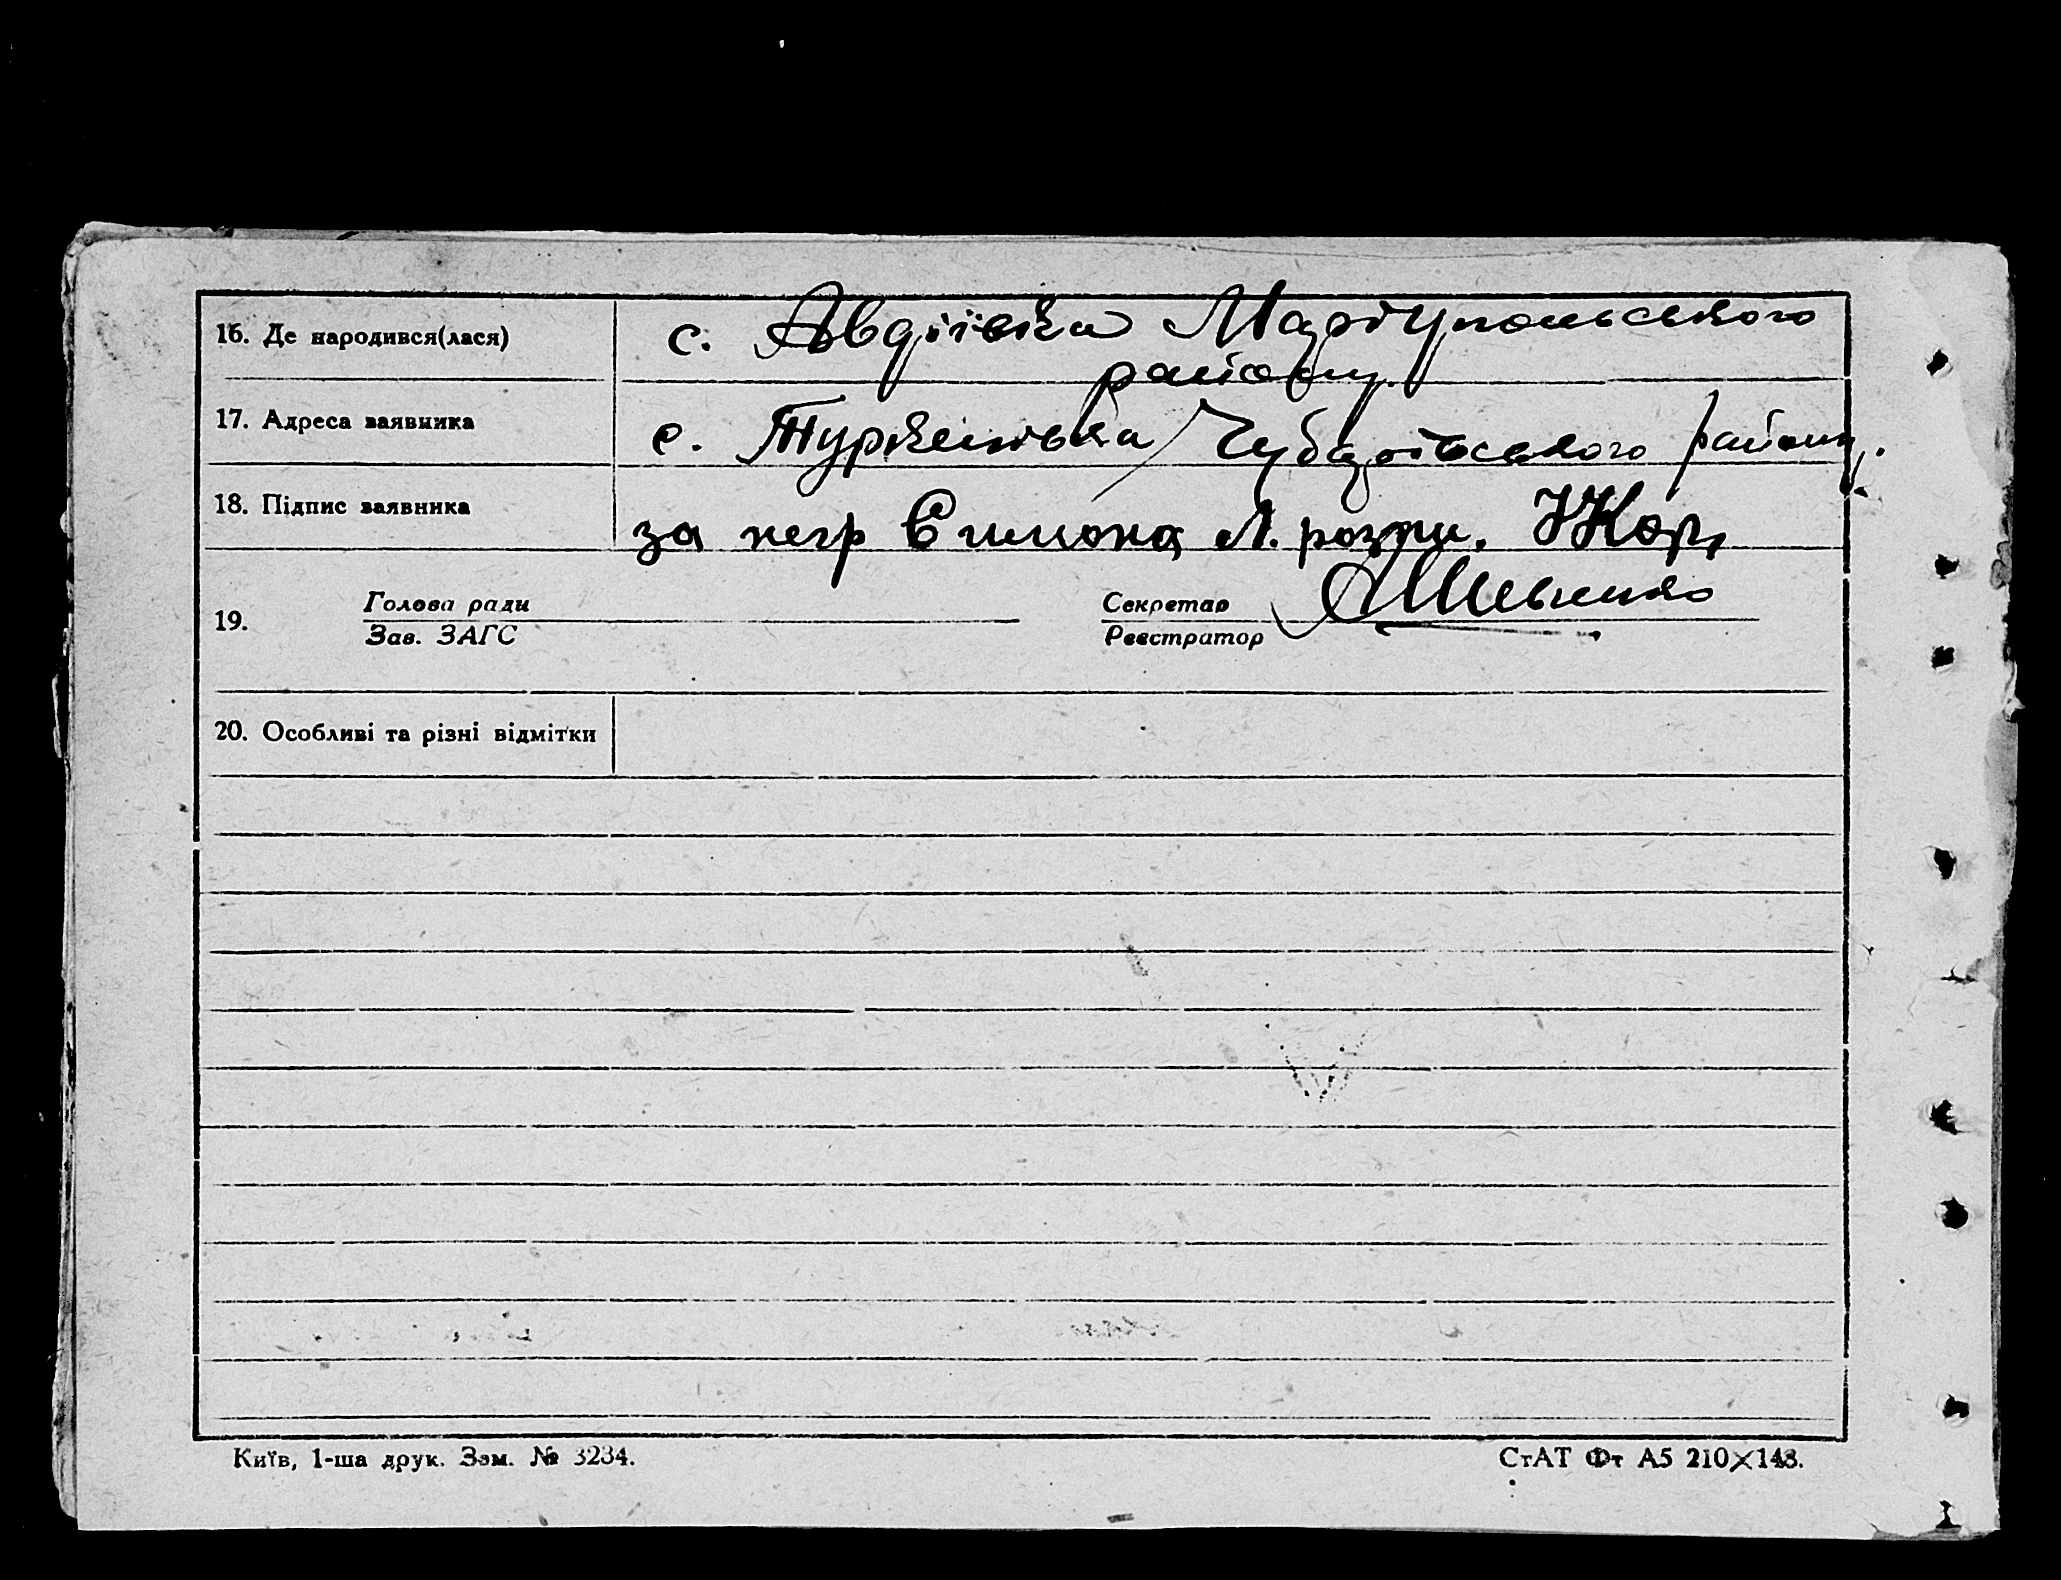 16. Де народився(лася) с. Авдіївка Маріупольського
району.
17. Адреса заявника с. Туркенівка Чубарівського району.
18. Підпис заявника за негр розпи.
19. Голова ради Секретар
Зав. ЗАГС Реєстратор
20. Особливі та різні відмітки
Київ, 1-ша друк. Зам. № 3234. СтАТ Фт А5 210×148.